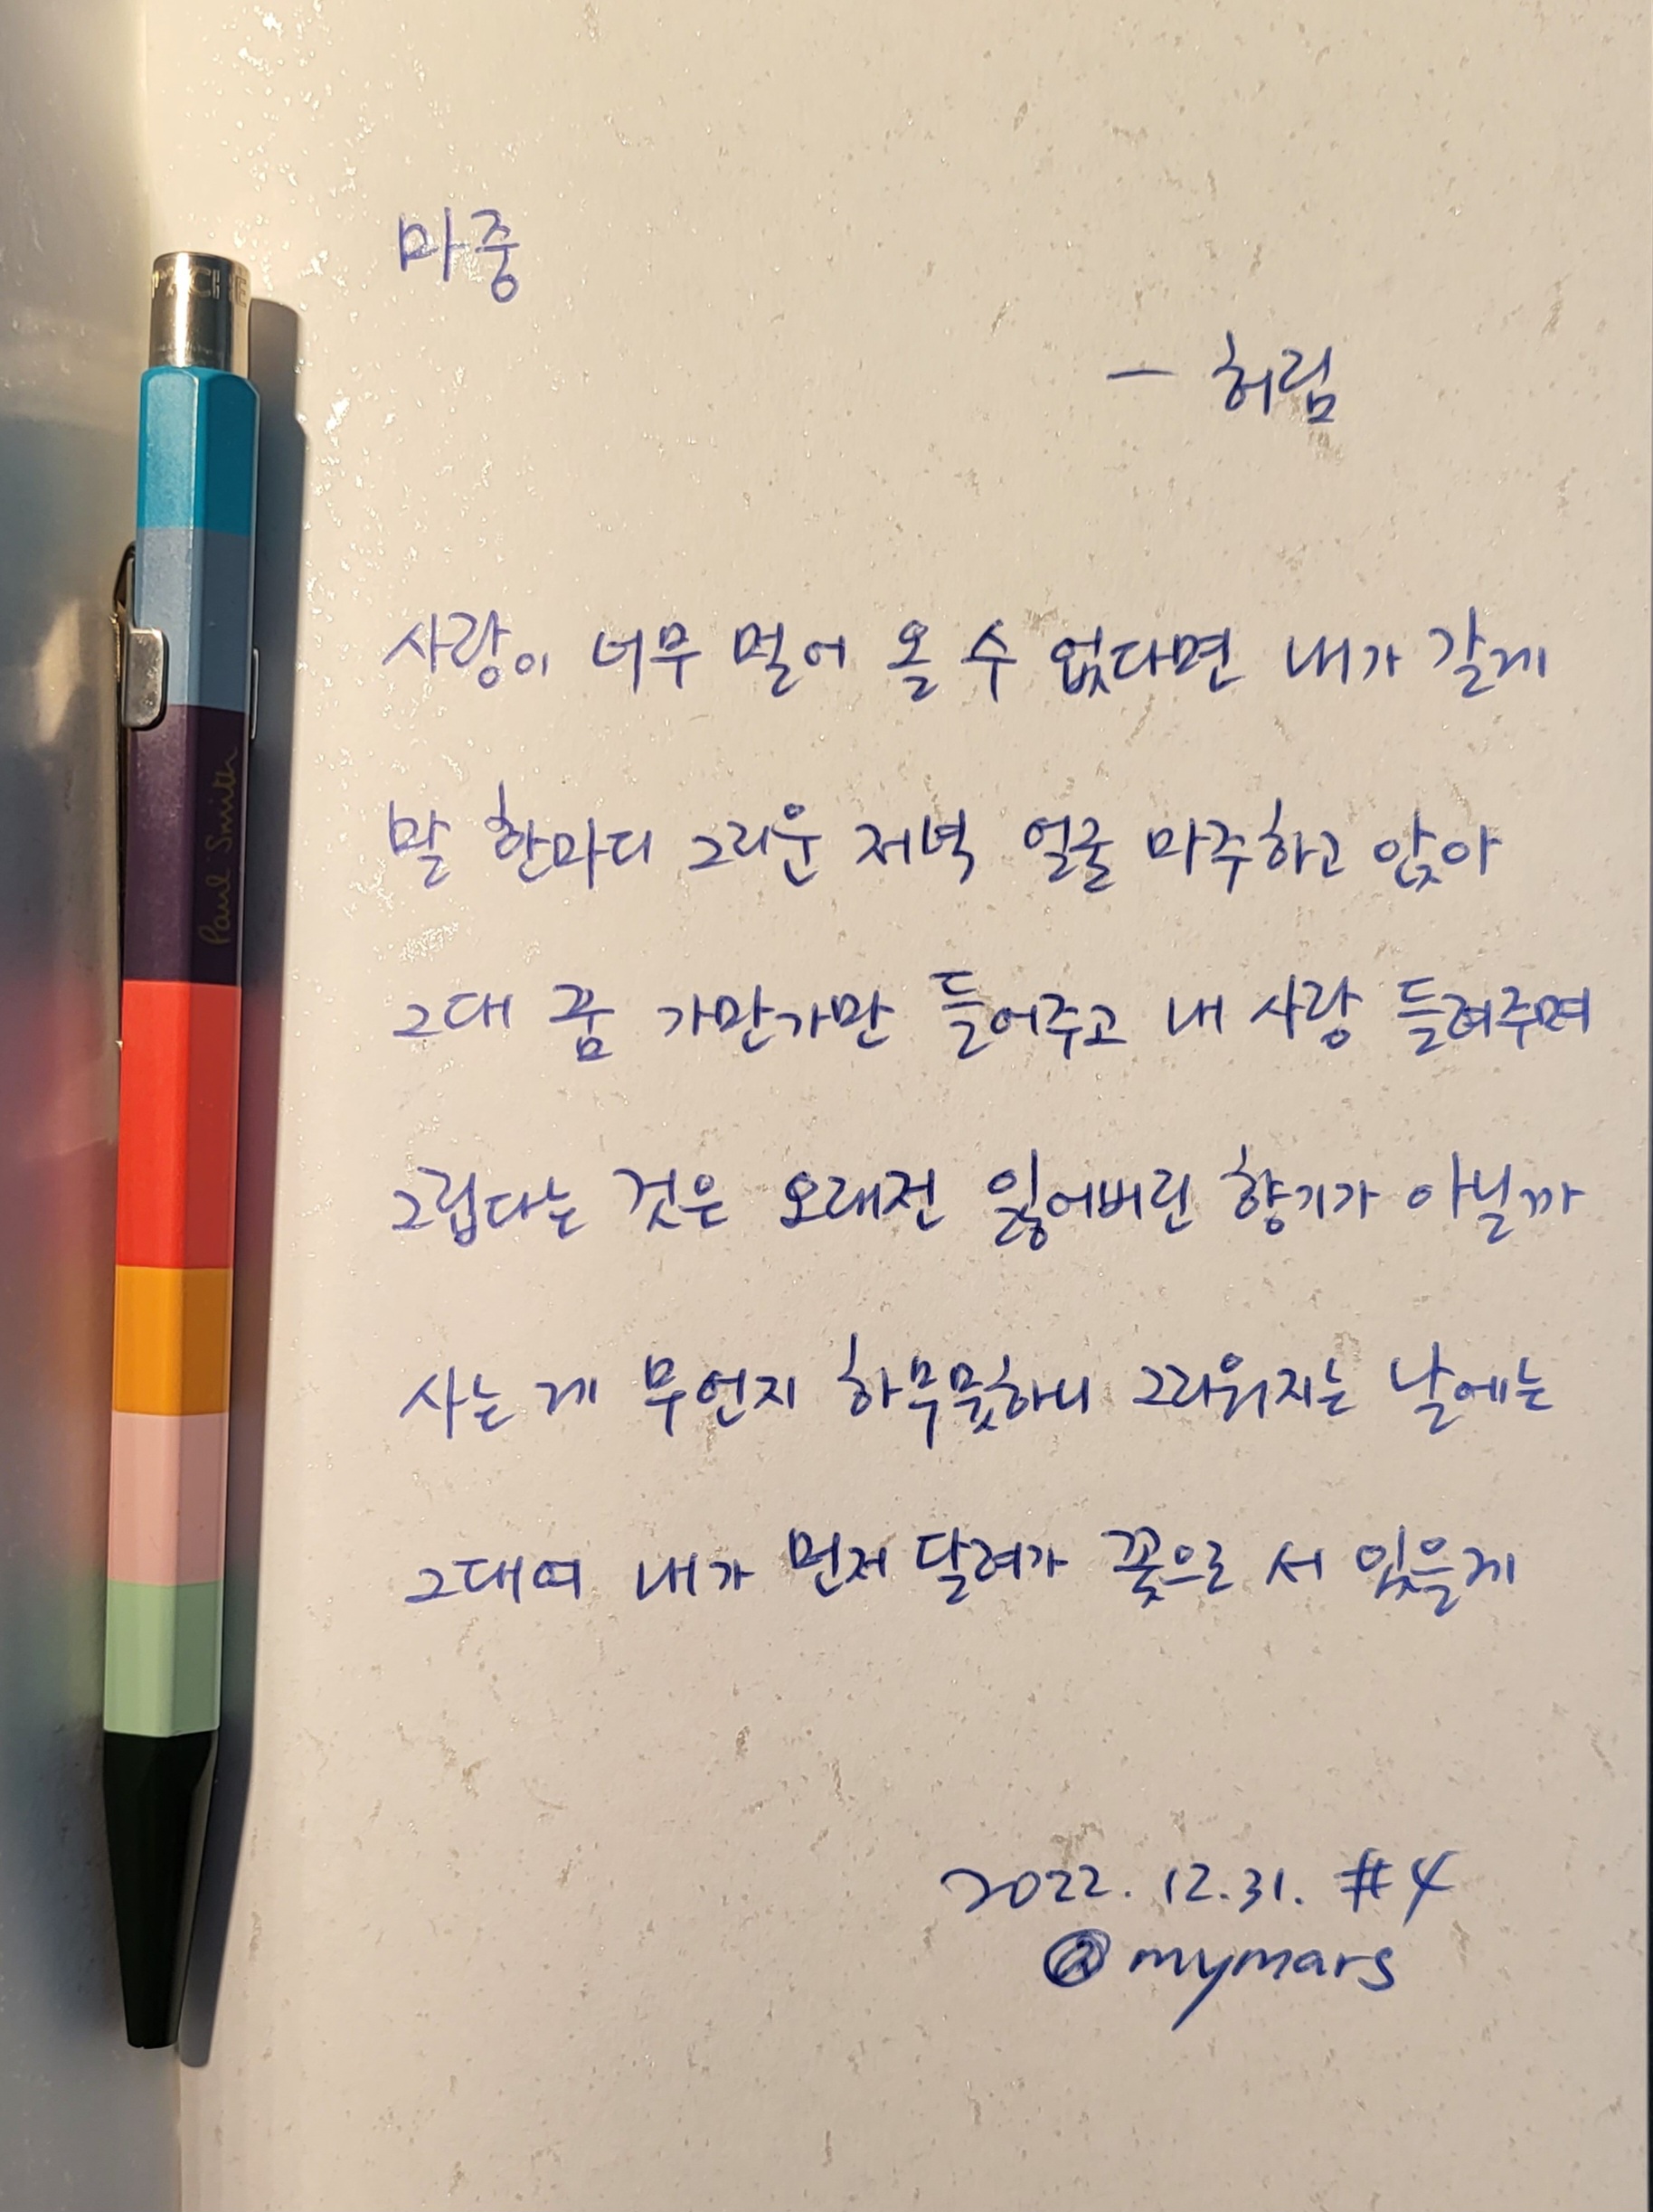 마중
- 허림
사랑이 너무 멀어 올 수 없다면 내가 갈게
말 한마디 그리운 저녁 얼굴 마주하고 앉아
그대 꿈 가만가만 들어주고 내 사랑 들려주며
그립다는 것은 오래전 잃어버린 향기가 아닐까
사는 게 무언지 하무뭇하니 그리워지는 날에는
그대여 내가 먼저 달려가 꽃으로 서 있을게
2022. 12. 31. #4
@mymars
Paul Smith